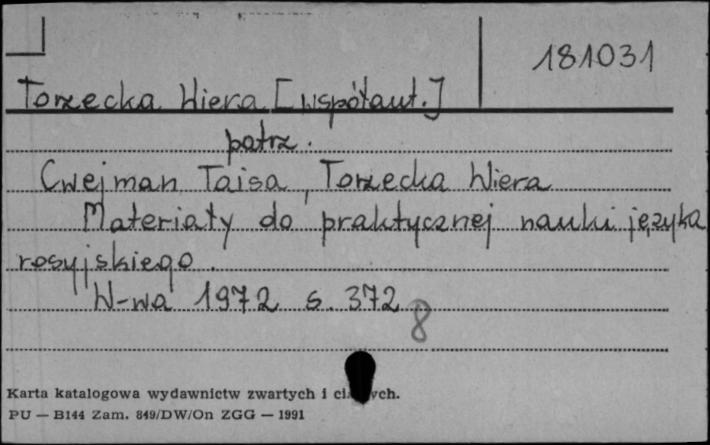 181031
Torzecka Wiera [współaut.]
patrz.
Cwejman Taisa, Torzecka Wiera
Materiały do praktycznej nauki języka
rosyjskiego.
W-wa 1972 s. 372
8
Karta katalogowa wydawnictw zwartych i
PU — B144 Zam. 849/DW/On ZGG — 1991